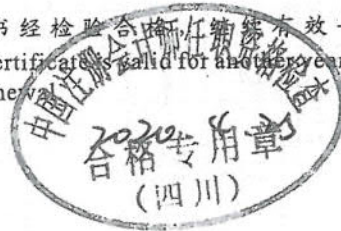 书经检验合格,继续有效一
ertificate is valid for another year
newal
中国注册会计师任职资格检查
2020.4.
合格专用章
(四川)